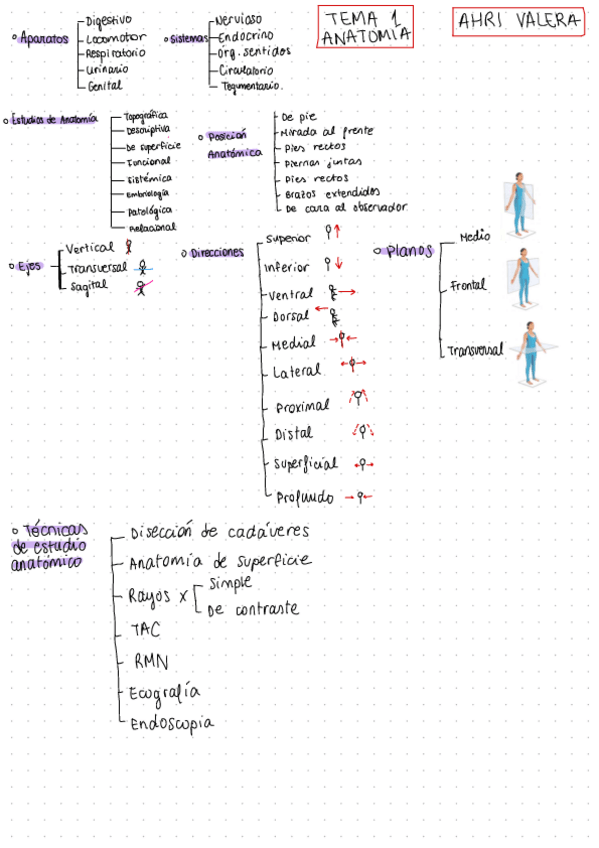 TEMA 1
ANATOMÍA
AHRI VALERA
Aparatos
Digestivo
Locomotor
Respiratorio
Urinario
Genital
Sistemas
Nervioso
Endocrino
Órg. sentidos
Circulatorio
Tegumentario.
Estudios de Anatomía
Topográfica
Descriptiva
De superficie
Funcional
Sistémica
Embriología
Patológica
Relacional
Posición
Anatómica
De pie
Mirada al frente
Pies rectos
Piernas juntas
Pies rectos
Brazos extendidos
De cara al observador
Ejes
Vertical
Transversal
Sagital
Direcciones
Superior
Inferior
Ventral
Dorsal
Medial
Lateral
Proximal
Distal
Superficial
Profundo
Planos
Medio
Frontal
Transversal
Técnicas
de estudio
anatómico
Disección de cadáveres
Anatomía de superficie
Rayos x
simple
De contraste
TAC
RMN
Ecografía
Endoscopia